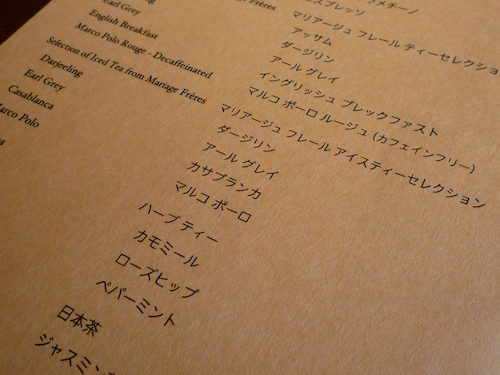 Earl Grey
English Breakfast
Marco Polo Rouge - Decaffeinated
Selection of Iced Tea from Mariage Frères
Darjeeling
Earl Grey
Casablanca
Marco Polo
Frères
マリアージュ フレール ティーセレクショ
アッサム
ダージリン
アール グレイ
イングリッシュ ブレックファスト
マルコ ポーロ ルージュ (カフェインフリー)
マリアージュ フレール アイスティーセレクション
ダージリン
アール グレイ
カサブランカ
マルコ ポーロ
ハーブティー
カモミール
ローズヒップ
ペパーミント
日本茶
ジャスミン